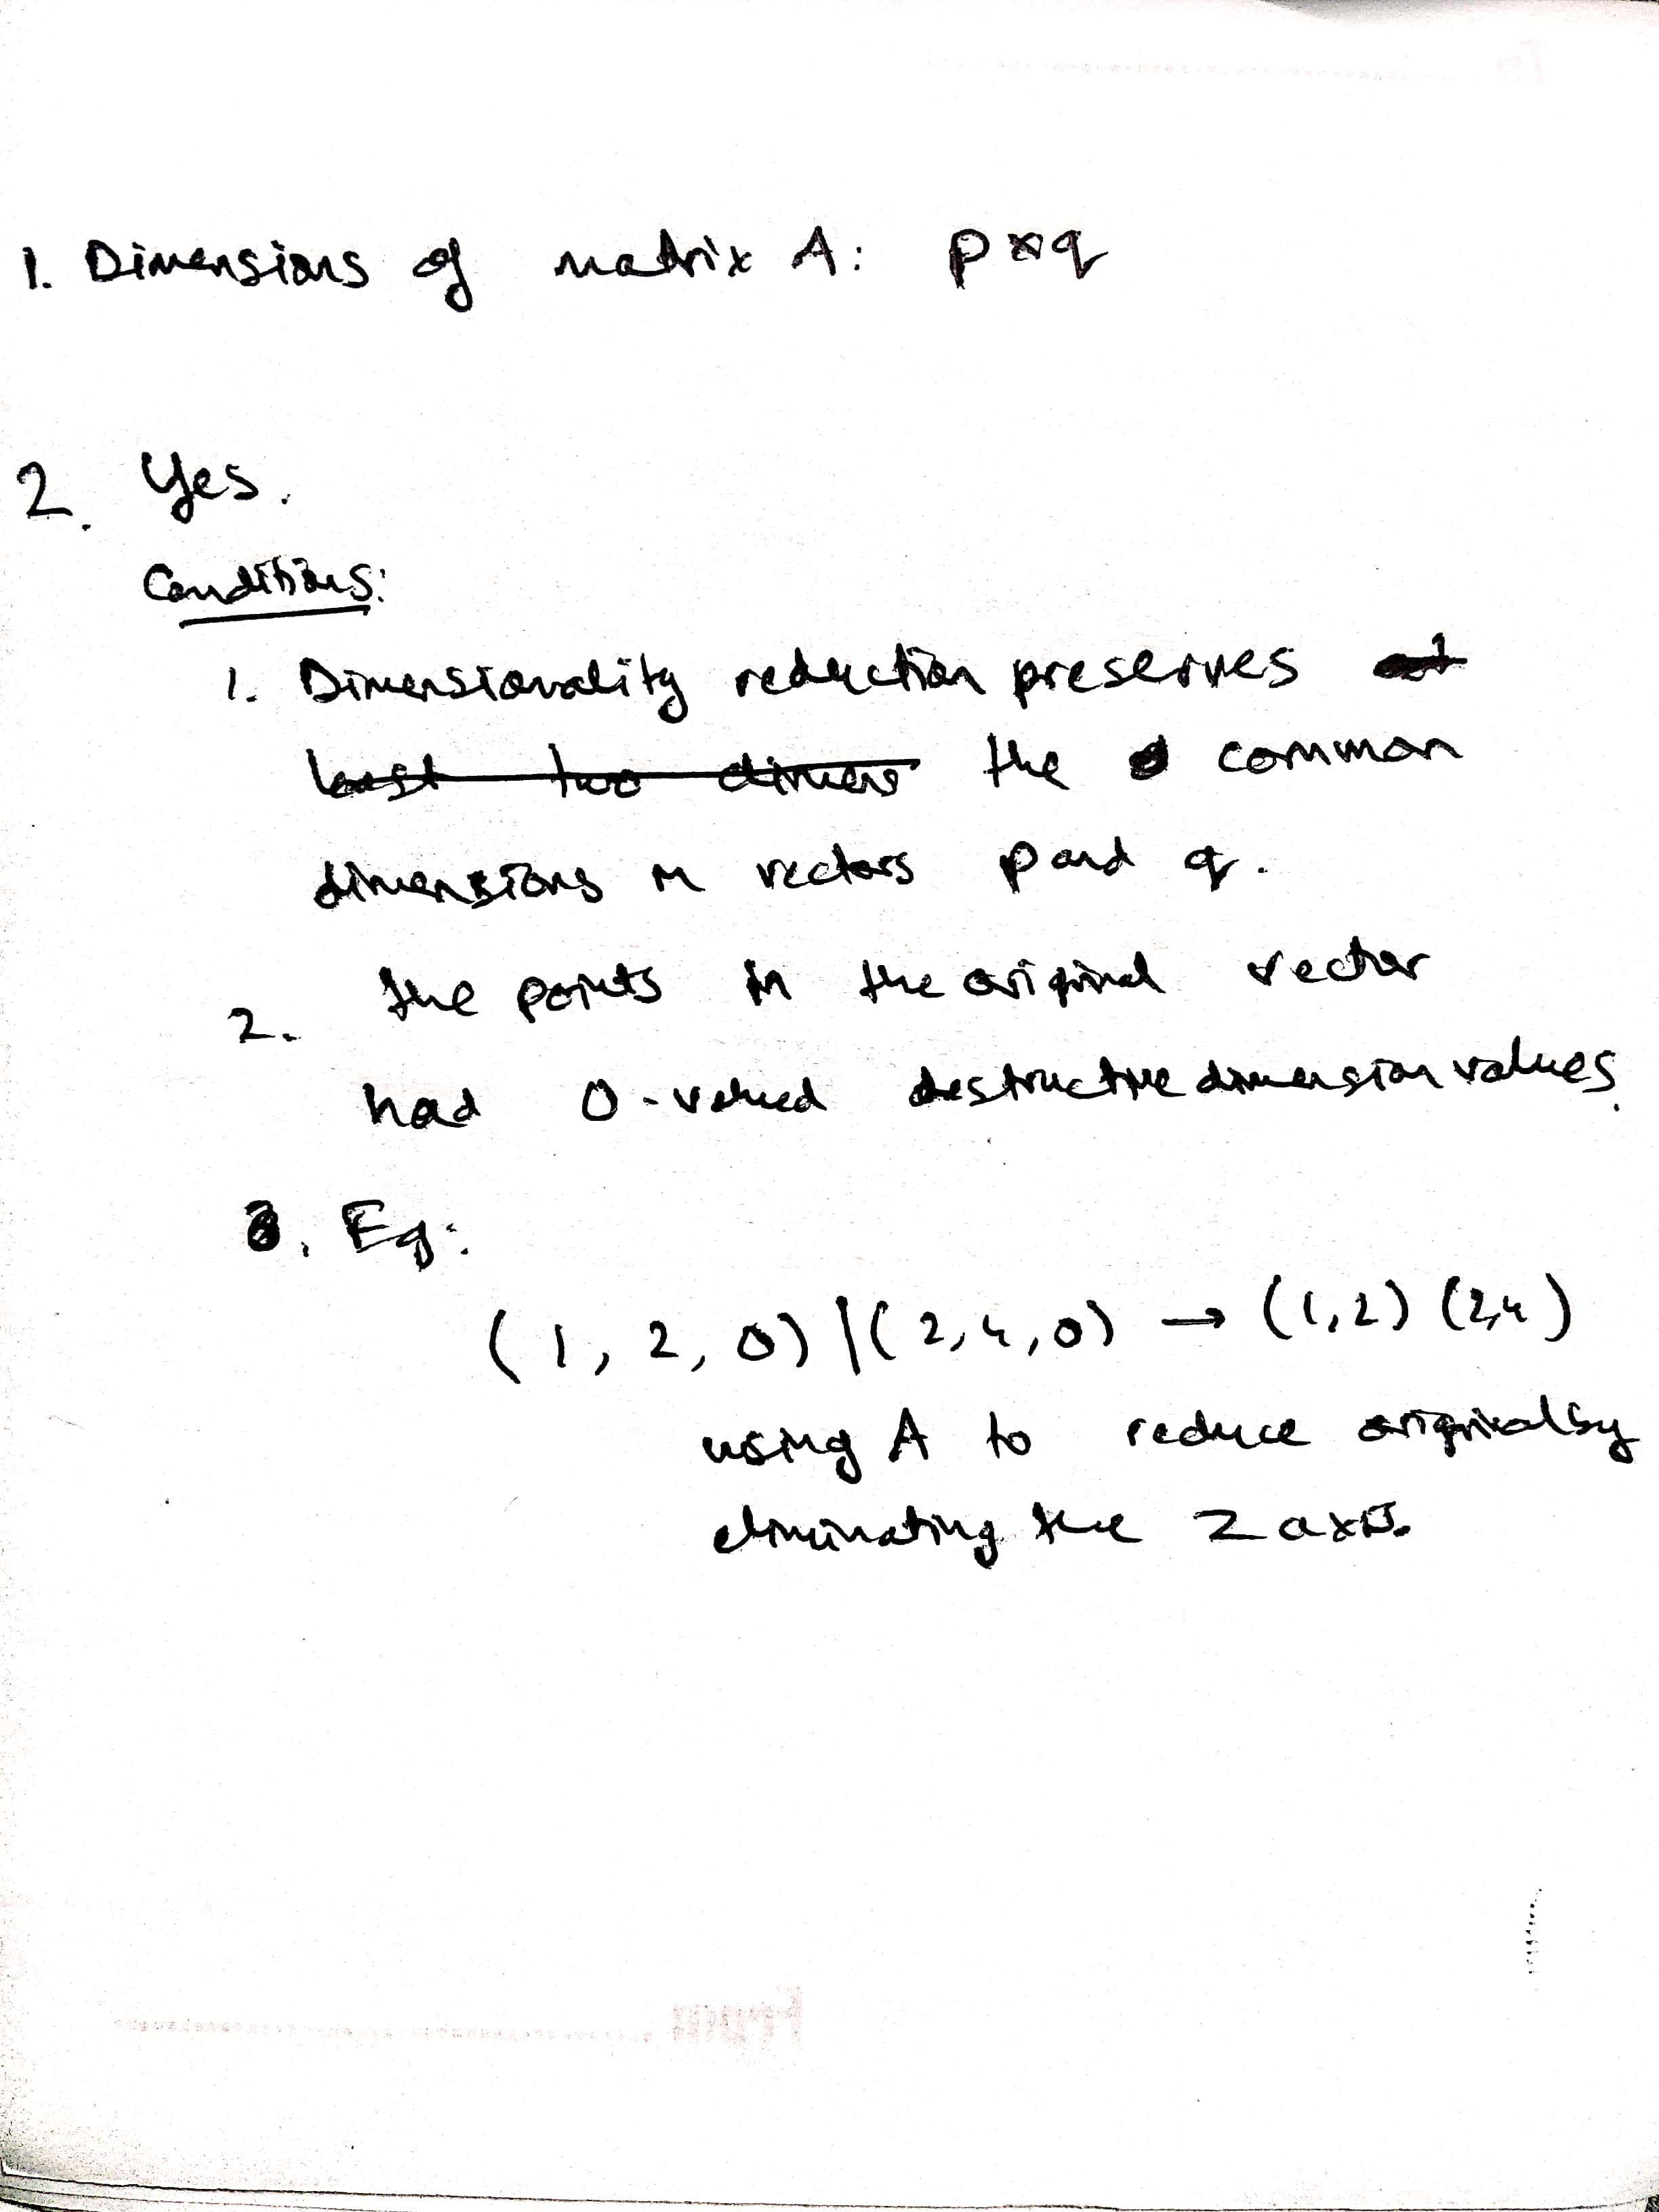 1. Dimensions of matrix A: p×q
2. Yes.
Conditions:
1. Dimensionality reduction preserves at
least two dimens the common
dimensions in vectors p and q.
2. the points in the original vector
had 0-valued destructive dimension values.
3. Eg:
(1, 2, 0) | (2, 4, 0) → (1, 2) (2, 4)
using A to reduce original by
eliminating the z axis.